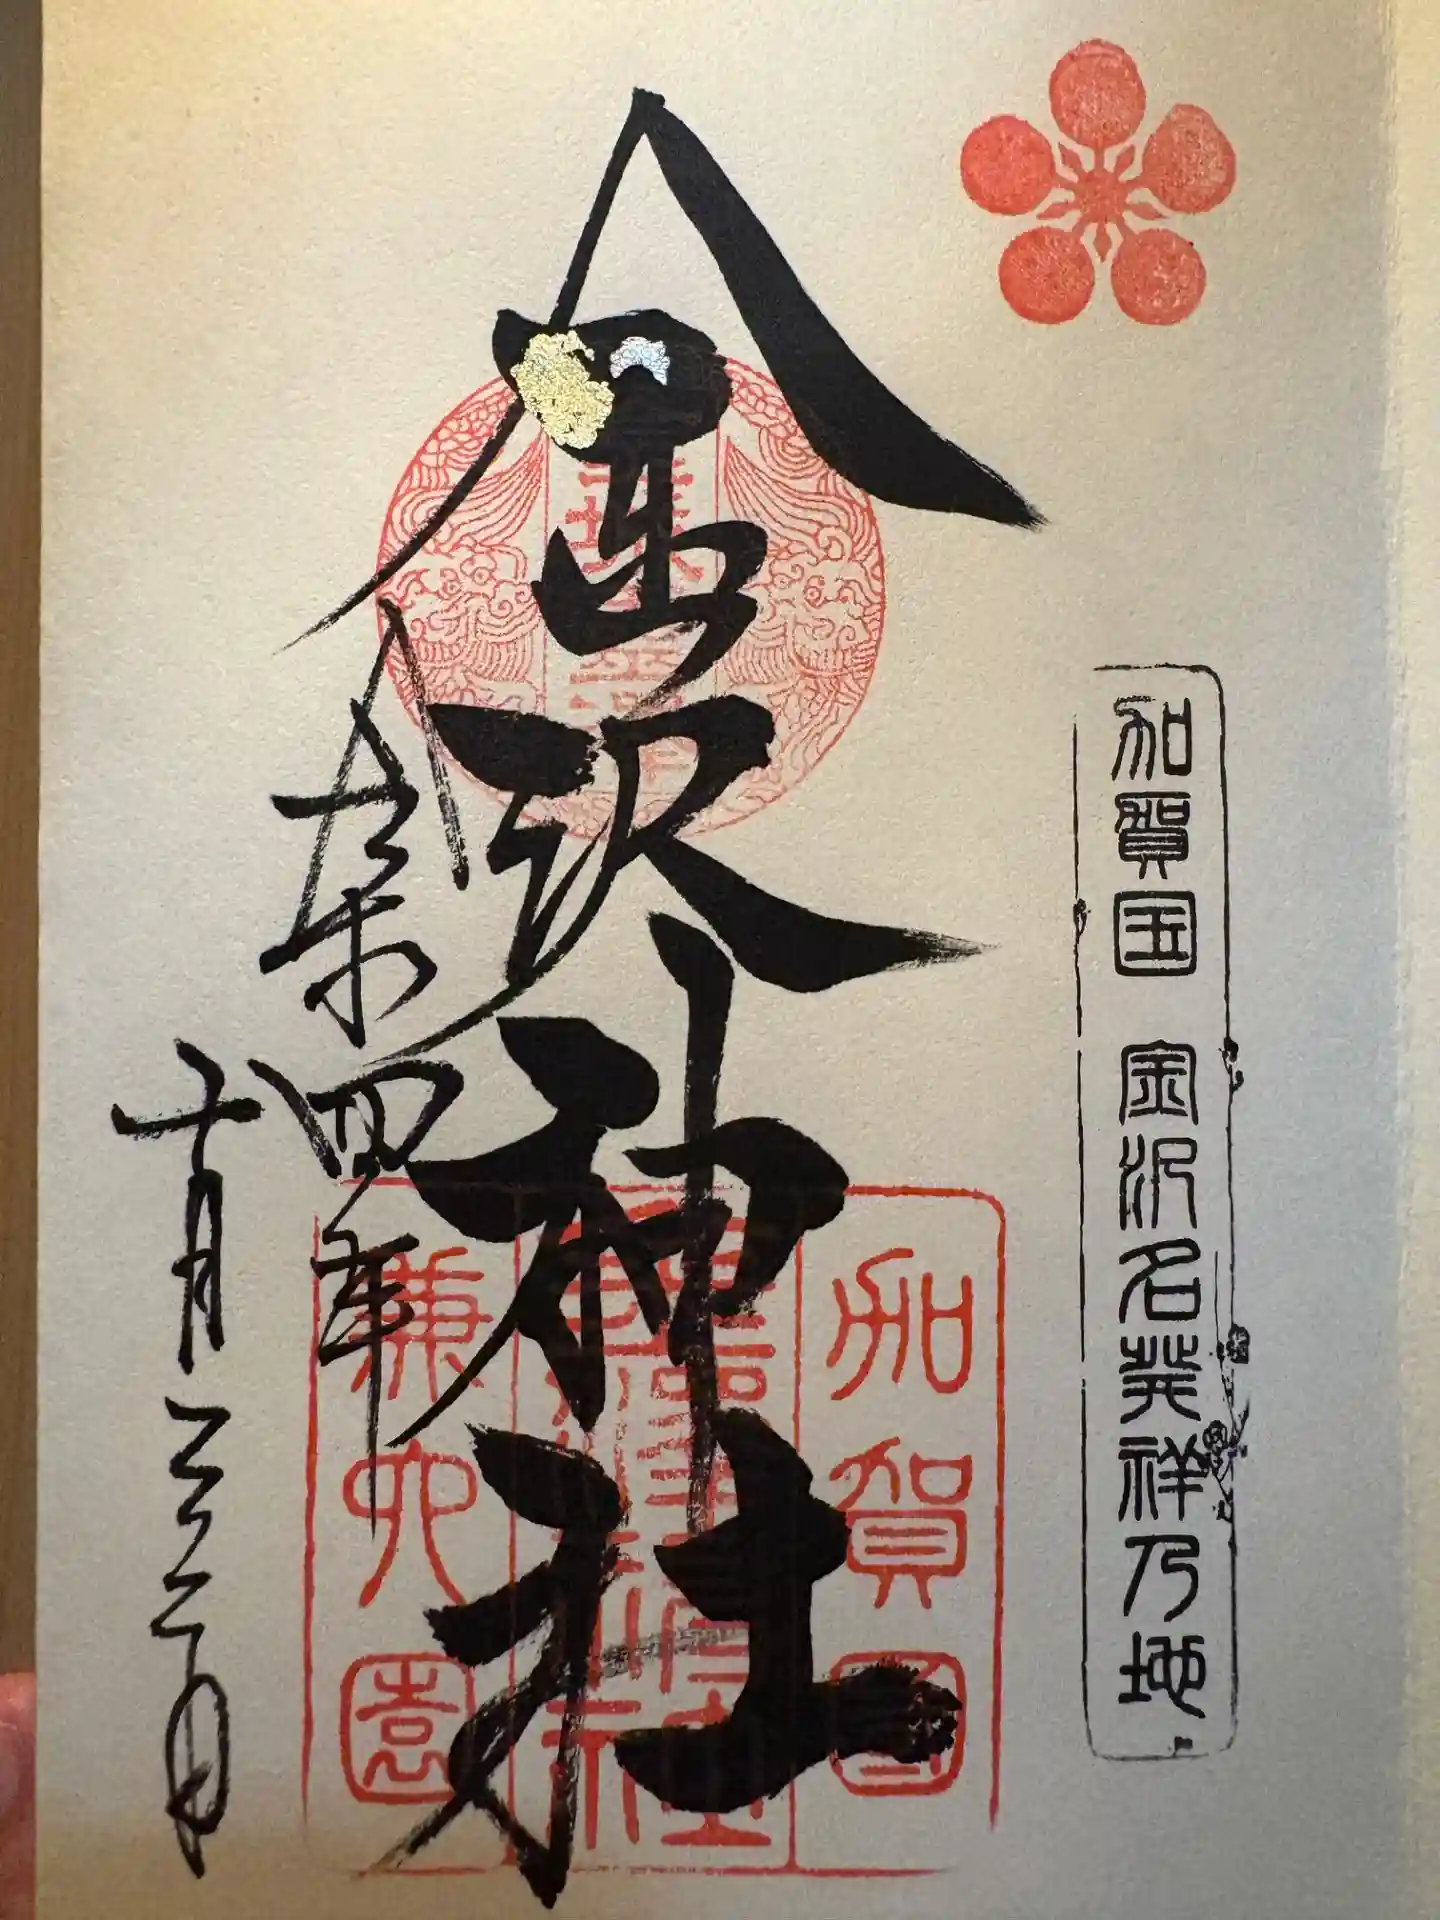 加賀国 金沢名発祥乃地
金沢神社
令和四年
十月二十二日
加賀國
金澤神社
兼六園